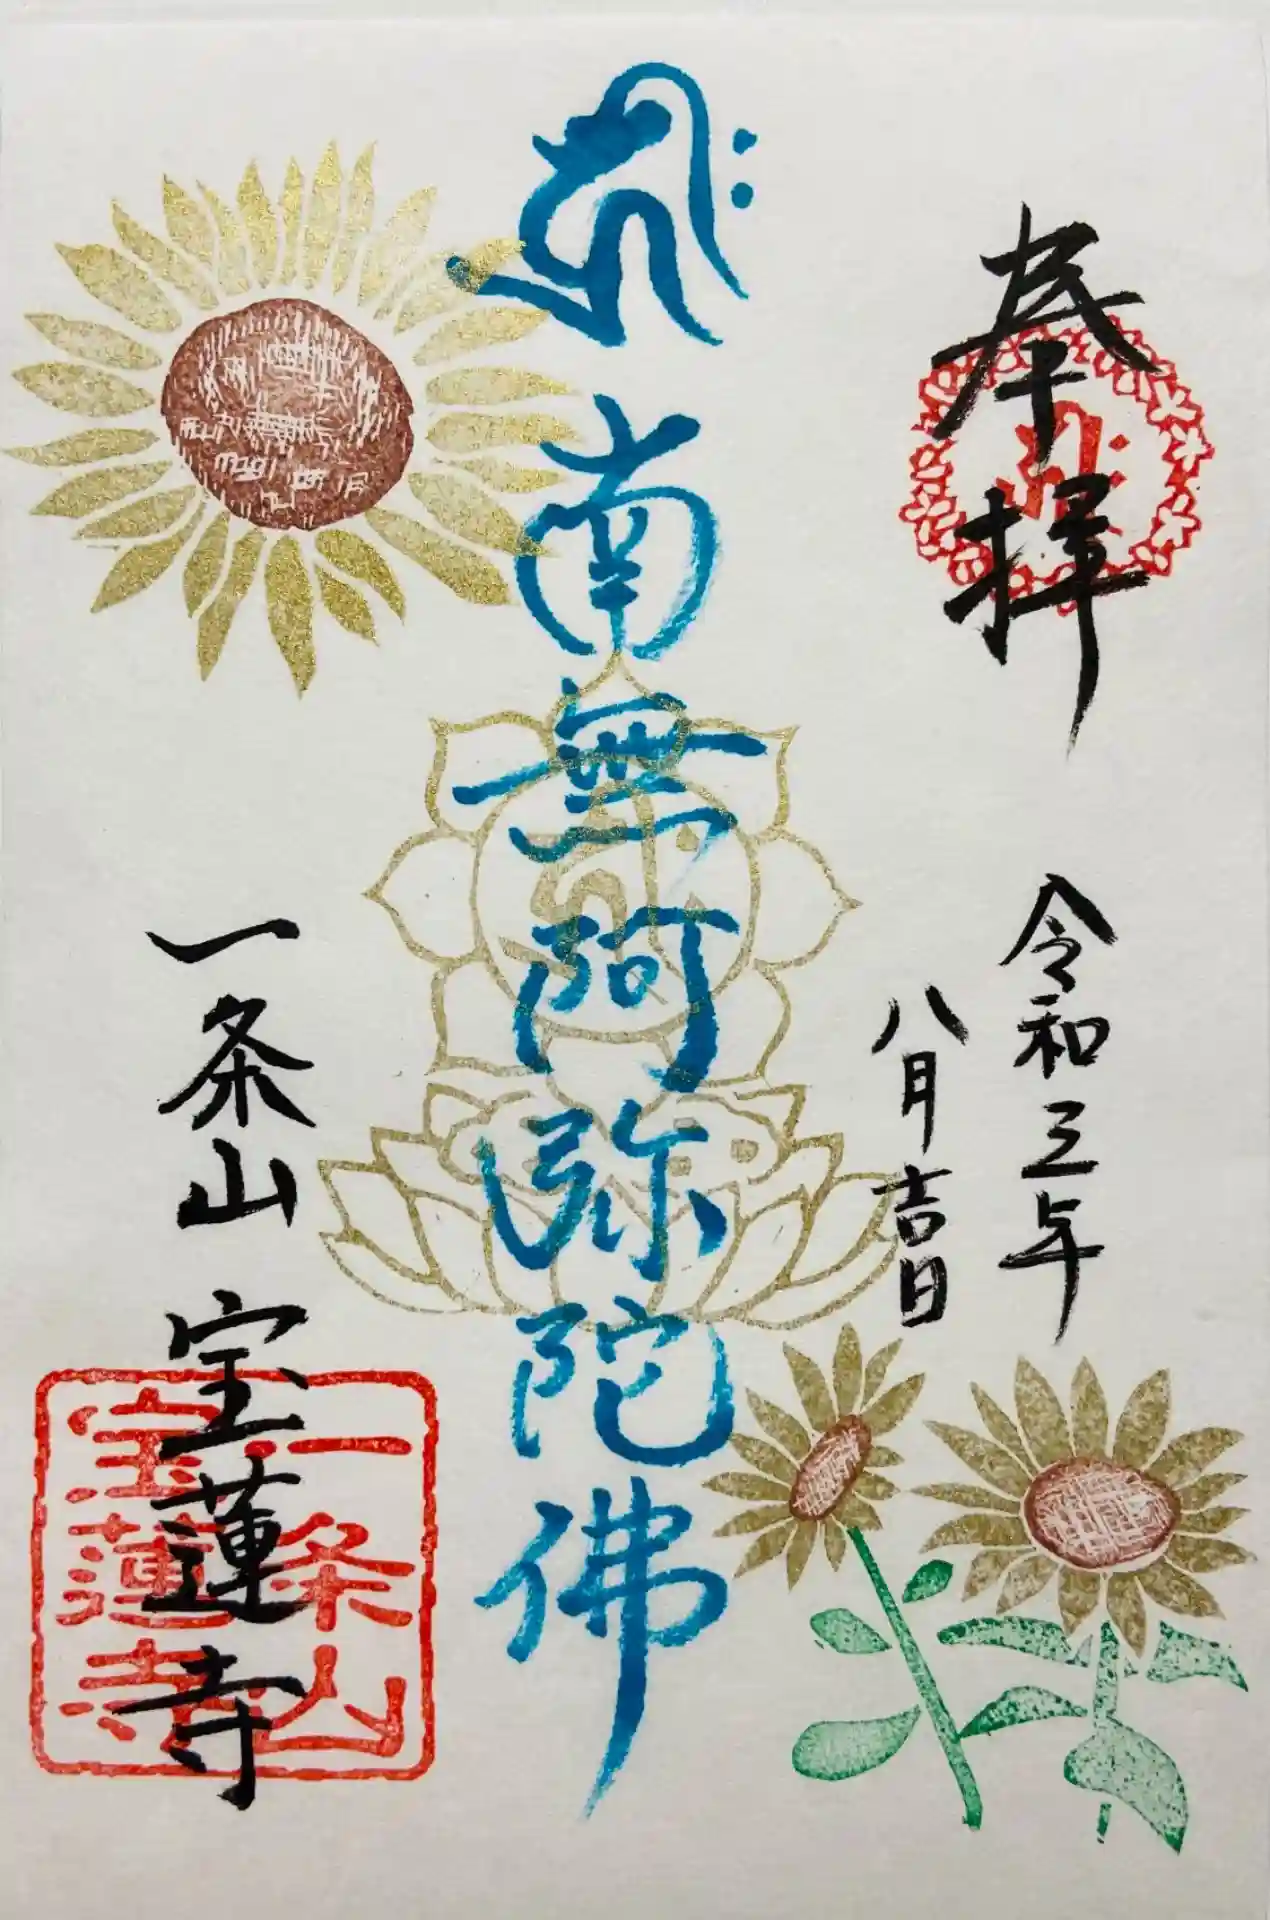 奉拝
令和三年
八月吉日
𑖮𑖿𑖨𑖱𑖾
南無阿弥陀佛
一条山 宝蓮寺
一条山
宝蓮寺